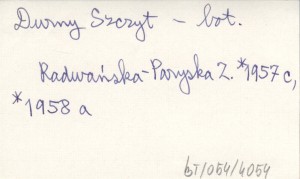 Durny Szczyt – bot.
Radwańska-Paryska Z. *1957 c,
*1958 a
bT/054/4054